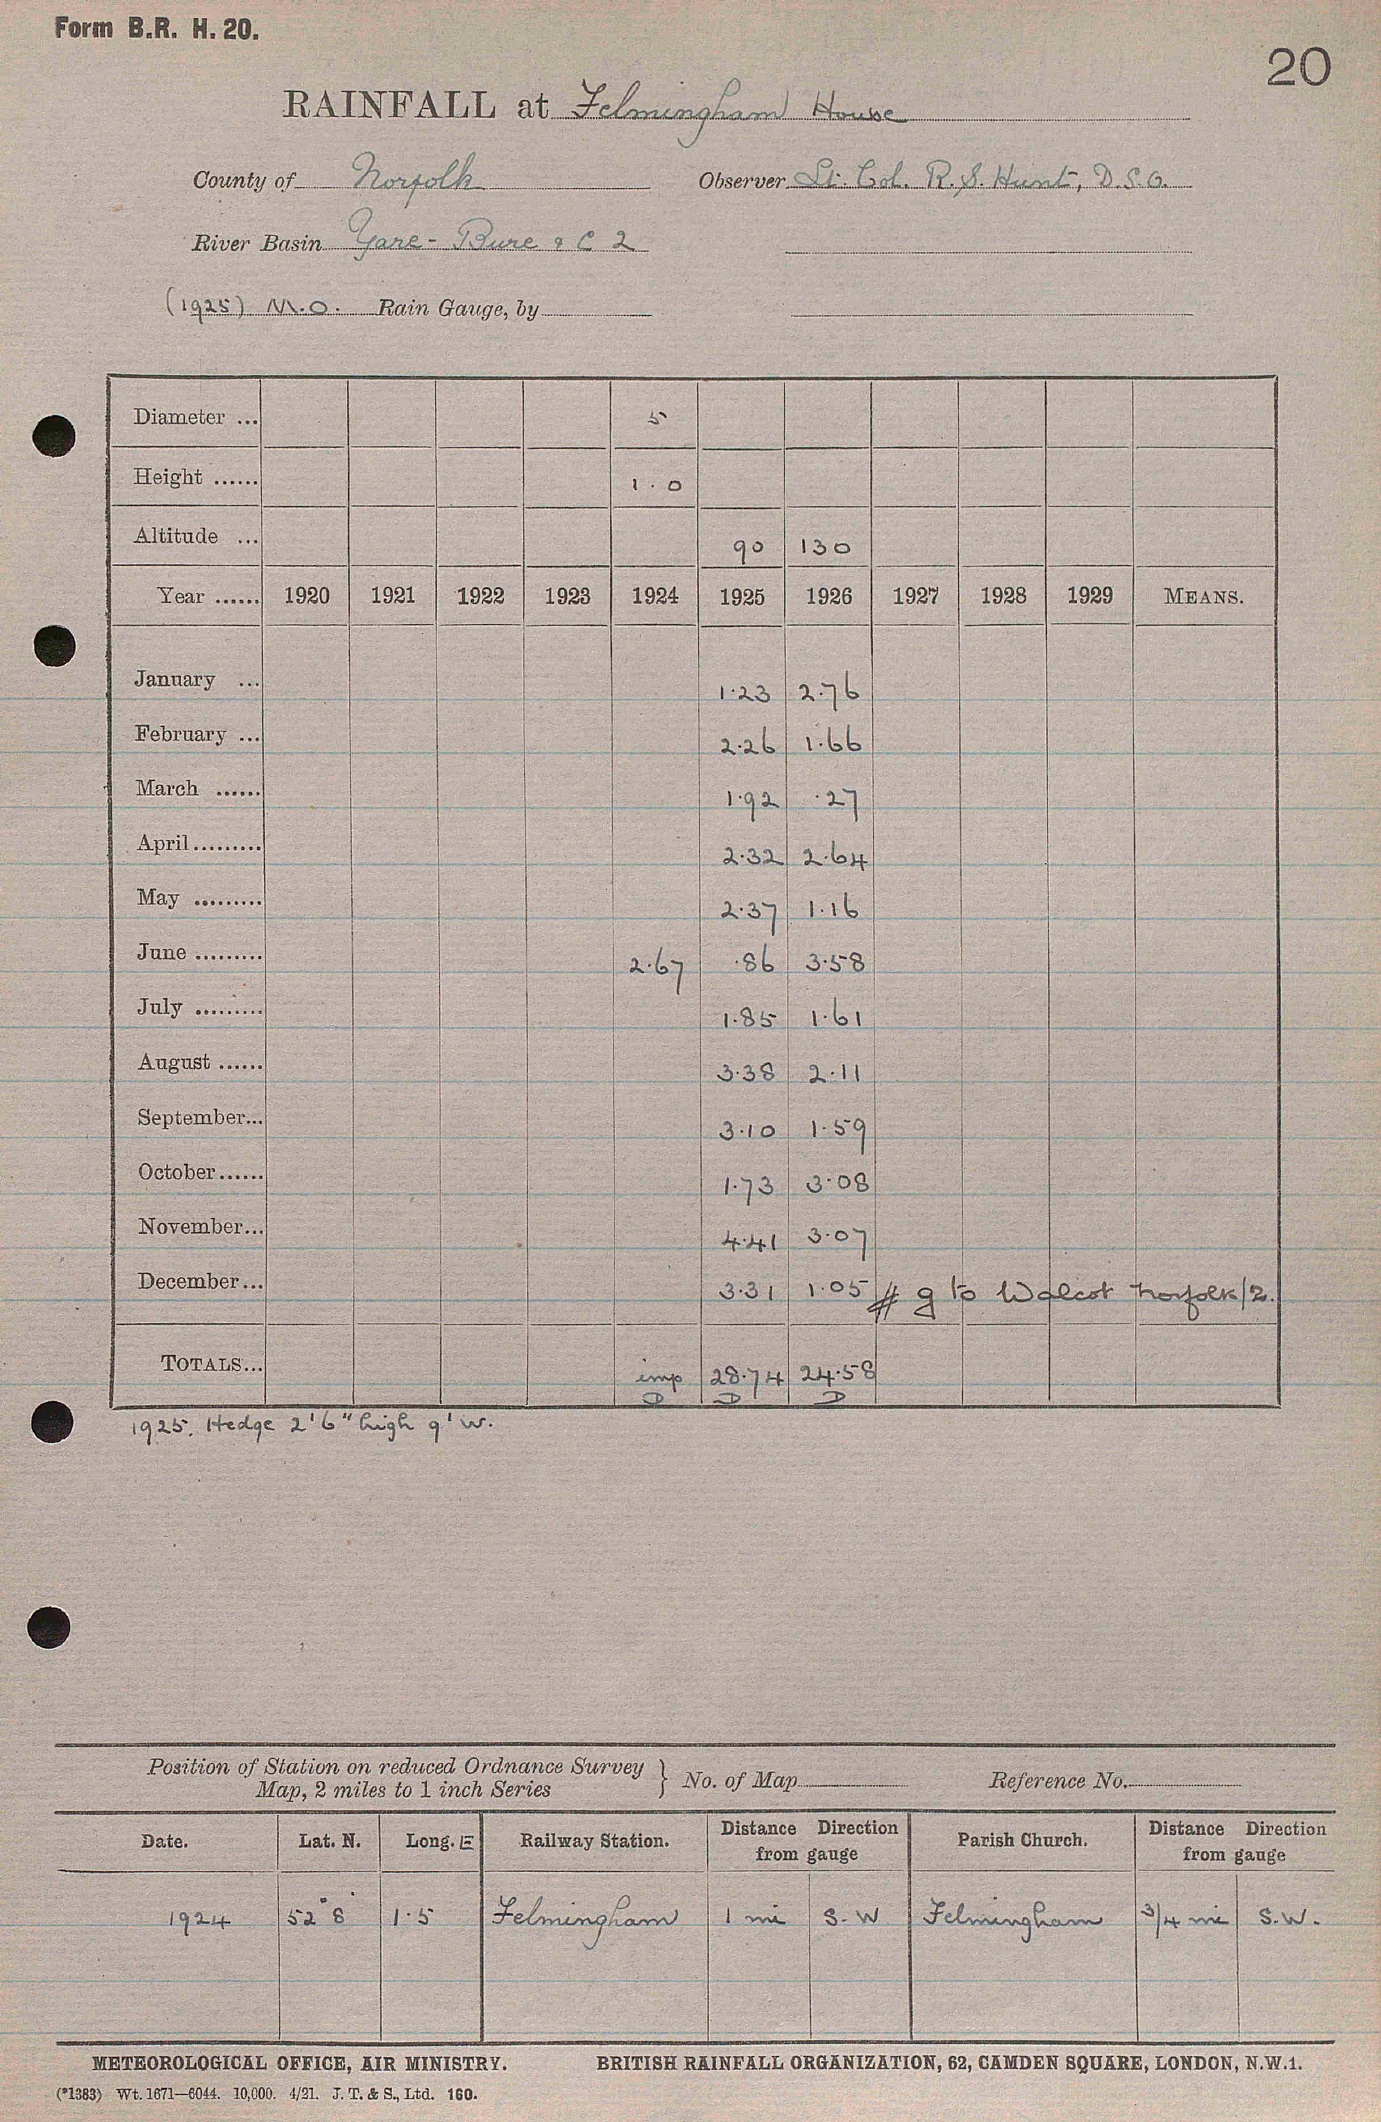 Form B.R. H. 20.
20
RAINFALL at Felmingham House
County of Norfolk Observer Lt. Col. R. S. Hunt, D.S.O.
River Basin Yare - Bure & C 2
(1925) M.O. Rain Gauge, by
Diameter ... 5
Height ...... 1.0
Altitude ... 90 130
Year ...... 1920 1921 1922 1923 1924 1925 1926 1927 1928 1929 MEANS.
January ... 1.23 2.76
February ... 2.26 1.66
March ...... 1.92 .27
April......... 2.32 2.64
May ......... 2.37 1.16
June ......... 2.67 .86 3.58
July ......... 1.85 1.61
August ...... 3.38 2.11
September... 3.10 1.59
October...... 1.73 3.08
November... 4.41 3.07
December... 3.31 1.05 # g to Walcot Norfolk/2.
TOTALS... imp 28.74 24.58
D D D
1925. Hedge 2'6" high 9' W.
Position of Station on reduced Ordnance Survey
Map, 2 miles to 1 inch Series } No. of Map Reference No.
Date. Lat. N. Long. E Railway Station. Distance Direction from gauge Parish Church. Distance Direction from gauge
1924 52° 8' 1.5 Felmingham 1 mi S.W Felmingham 3/4 mi S.W.
METEOROLOGICAL OFFICE, AIR MINISTRY. BRITISH RAINFALL ORGANIZATION, 62, CAMDEN SQUARE, LONDON, N.W.1.
(*1383) Wt. 1671—6044. 10,000. 4/21. J. T. & S., Ltd. 160.